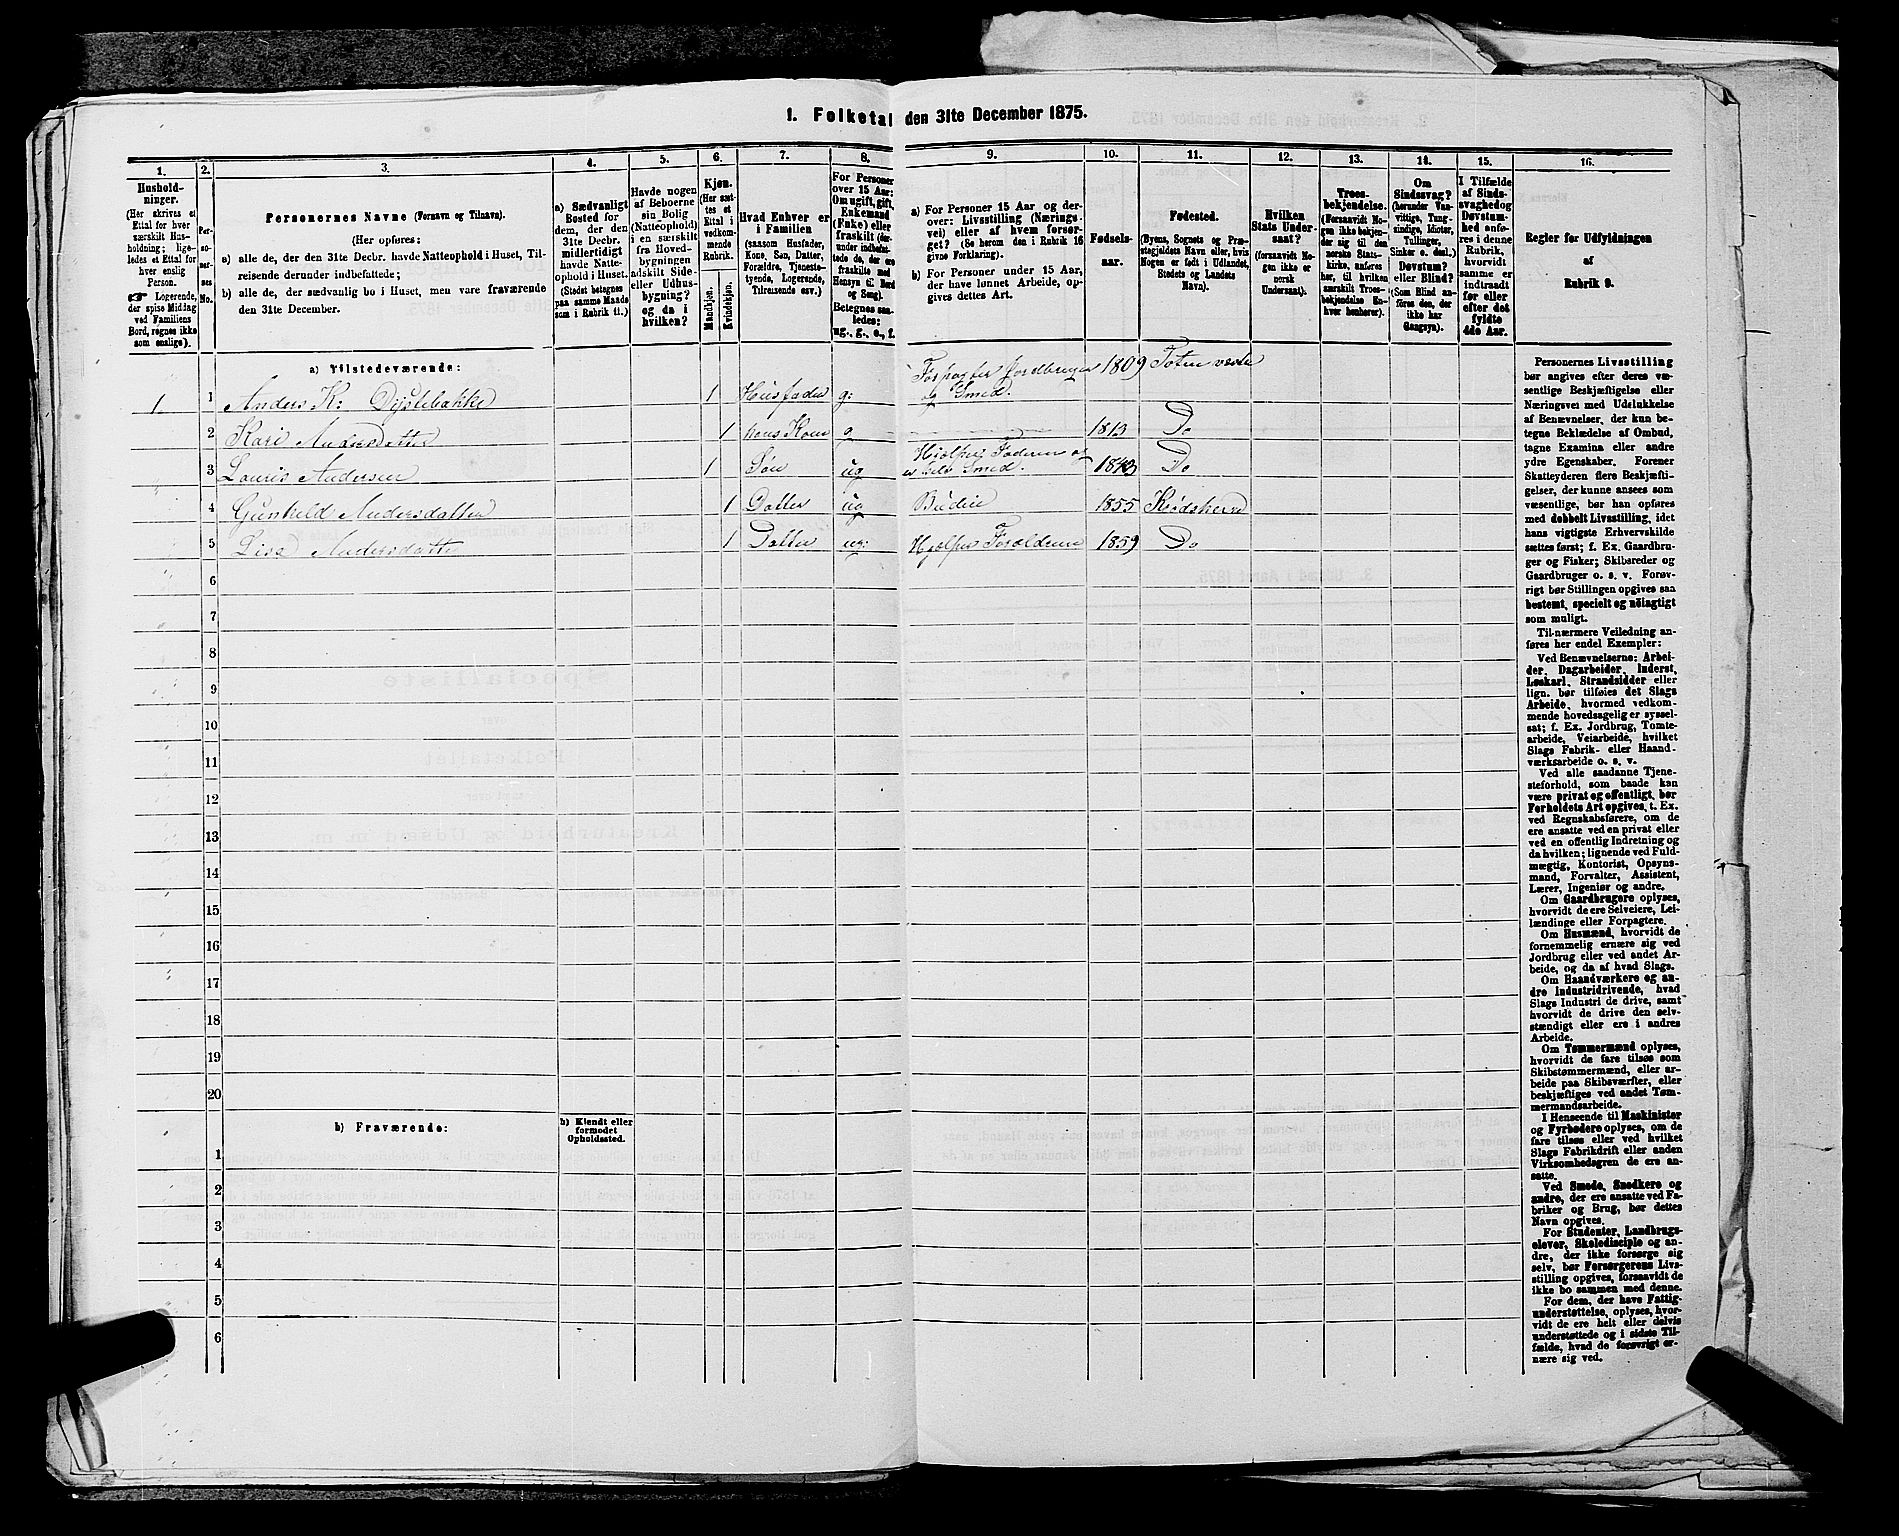 1. Folketal den 31te December 1875.
1.
2.
3.
4.
5.
6.
7.
8.
9.
10.
11.
12.
13.
14.
15.
16.
Hushold-
ninger.
(Her skrives et
Ettal for hver
særskilt Hus-
holdning; lige-
ledes et Ettal for
hver enslig
Person.
☞ Logerende,
der spise Middag
ved Familiens
Bord, regnes ikke
som enslige).
Per-
so-
ner-
nes
No.
Personernes Navne (Fornavn og Tilnavn).
(Her opføres:
a) alle de, der den 31te Decbr. havde Natteophold i Huset, Til-
reisende derunder indbefattede;
b) alle de, der sædvanlig bo i Huset, men vare fraværende
den 31te December.
a) Sædvanligt
Bosted for
dem, der den
31te Decbr.
midlertidigt
havde Natte-
ophold i Huset.
(Stedet betegnes
paa samme Maade
som i Rubrik 11.)
Havde nogen
af Beboerne
sin Bolig
(Natteophold)
i en særskilt
fra Hoved-
bygningen
adskilt Side-
eller Udhus-
bygning?
og da i
hvilken?
Kjøn.
(Her sæt-
tes et
Ettal i
vedkom-
mende
Rubrik.
Mandkjøn.
Kvindekjøn.
Hvad Enhver er
i Familien
(saasom Husfader,
Kone, Søn, Datter,
Forældre, Tjeneste-
tyende, Logerende,
Tilreisende osv.)
For Personer
over 15 Aar:
Om ugift, gift,
Enkemand
(Enke) eller
fraskilt (der-
under indbefat-
tede de, der ere
fraskilte med
Hensyn til Bord
og Seng).
Betegnes saa-
ledes:
ug., g., e., f.
a) For Personer 15 Aar og der-
over: Livsstilling (Nærings-
vei) eller af hvem forsør-
get? (Se herom den i Rubrik 16
givne Forklaring).
b) For Personer under 15 Aar,
der have lønnet Arbeide, op-
gives dettes Art.
Fødsels-
aar.
Fødested.
(Byens, Sognets og Præ-
stegjeldets Navn eller, hvis
Nogen er født i Udlandet,
Stedets og Landets
Navn).
Hvilken
Stats Under-
saat?
(forsaavidt No-
gen ikke er
norsk
Undersaat).
Troes-
bekjendelse.
(Forsaavidt No-
gen ikke bekjen-
der sig til den
norske Stats-
kirke, anføres
her, til hvilken
særskilt Troes-
bekjendelse En-
hver henhører).
Om
Sindssvag?
(herunder Van-
vittige, Tung-
sindige, Idioter,
Tullinger,
Sinker o. desl.)
Døvstum?
eller Blind?
(Som Blind an-
føres den, der
ikke har
Gangsyn).
I Tilfælde
af Sinds-
svaghed og
Døvstum-
hed anfø-
res i denne
Rubrik,
hvorvidt
samme er
indtraadt
før eller
efter det
fyldte
4de Aar.
Regler for Udfyldningen
af
Rubrik 9.
a) Tilstedeværende:
1 1 Anders K: Dystebakke 1 Husfader g: Forpagter jordbruger og Smed. 1809 Toten vestre
2 Kari Andersdatter 1 hans Kone g 1813 Do
3 Lauris Andersen 1 Søn ug Hjælper Faderen og er selv Smed. Do
4 Gunhild Andersdatter 1 Datter ug Budeie 1855 Krødsherred
5 Lisa Andersdatter 1 Datter ug: Hjælper Forældrene 1859 Do
6
7
8
9
10
11
12
13
14
15
16
17
18
19
20
b) Fraværende:
b) Kjendt eller
formodet
Opholdssted.
1
2
3
4
5
6
Personernes Livsstilling
bør angives efter deres væ-
sentlige Beskjæftigelse eller
Næringsvei med Udelukkelse
af Benævnelser, der kun be-
tegne Beklædelse af Ombud,
tagne Examina eller andre
ydre Egenskaber. Forener
Skatteyderen flere Beskjæfti-
gelser, der kunne ansees som
væsentlige, bør han opføres
med dobbelt Livsstilling, idet
hans vigtigste Erhvervskilde
sættes først; f. Ex. Gaardbru-
ger og Fisker; Skibsreder og
Gaardbruger o. s. v. Forøv-
rigt bør Stillingen opgives saa
bestemt, specielt og nöiagtigt
som muligt.
Til nærmere Veiledning an-
føres her endel Exempler:
Ved Benævnelserne: Arbei-
der, Dagarbeider, Inderst,
Løskarl, Strandsidder eller
lign. bør tilføies det Slags
Arbeide, hvormed vedkom-
mende hovedsagelig er syssel-
sat; f. Ex. Jordbrug, Tomte-
arbeide, Veiarbeide, hvilket
Slags Fabrik- eller Haand-
værksarbeide o. s. v.
Ved alle saadanne Tjene-
steforhold, som baade kan
være privat og offentligt, bør
Forholdets Art opgives, t. Ex.
ved Regnskabsførere, om de
ere ansatte ved en privat eller
ved en offentlig Indretning og
da hvilken; lignende ved Fuld-
mægtig, Kontorist, Opsyns-
mand, Forvalter, Assistent,
Lærer, Ingeniør og andre.
Om Gaardbrugere oplyses,
hvorvidt de ere Selveiere, Lei-
lændinge eller Forpagtere.
Om Husmænd, hvorvidt de
fornemmelig ernære sig ved
Jordbrug eller ved andet Ar-
beide, og da af hvad Slags.
Om Haandværkere og an-
dre Industridrivende, hvad
Slags Industri de drive, samt
hvorvidt de drive den selv-
stændigt eller ere i andres
Arbeide.
Om Tømmermænd oplyses,
hvorvidt de fare tilsøs som
Skibstømmermænd, eller ar-
beide paa Skibsværfter, eller
beskjæftiges ved andet Tøm-
mermandsarbeide.
I Henseende til Maskinister
og Fyrbødere oplyses, om de
fare tilsøs eller ved hvilket
Slags Fabrikdrift eller anden
Virksomhedsgren de ere an-
satte.
Ved Smede, Snedkere og
andre, der ere ansatte ved Fa-
briker og Brug, bør dettes
Navn opgives.
For Studenter, Landbrugs-
elever, Skoledisciple og an-
dre, der ikke forsørge sig
selv, bør Forsørgerens Livs-
stilling opgives, forsaavidt de
ikke bo sammen med denne.
For dem, der have Fattig-
understøttelse, oplyses, hvor-
vidt de ere helt eller delvis
understøttede og i sidste Til-
fælde, hvad de forøvrigt er-
nære sig ved.